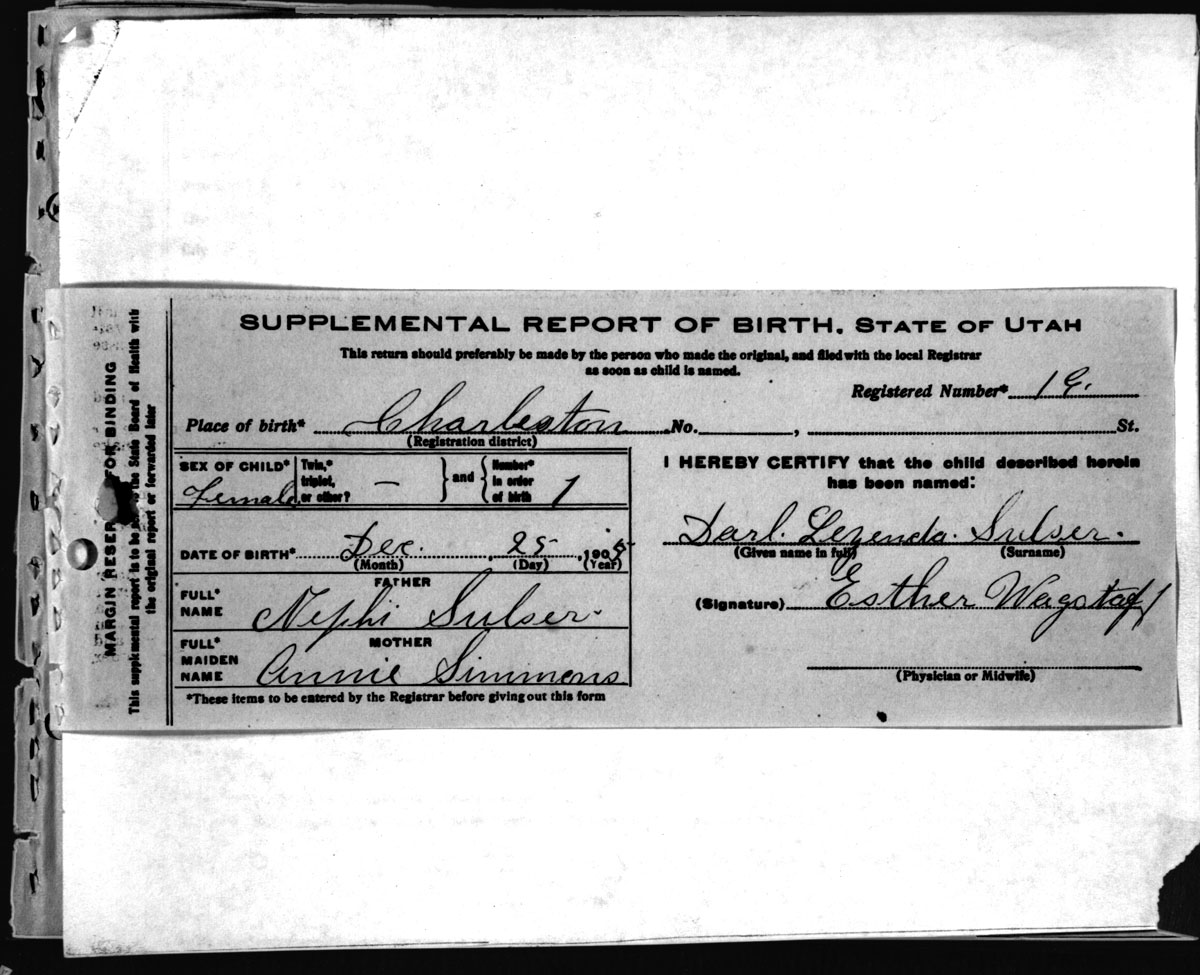 SUPPLEMENTAL REPORT OF BIRTH. STATE OF UTAH
This return should preferably be made by the person who made the original, and filed with the local Registrar
as soon as child is named.
Registered Number* 19.
Place of birth* Charleston No. , St.
(Registration district)
SEX OF CHILD* Female
Twin,* triplet, or other? — and Number* in order of birth 1
DATE OF BIRTH* Dec. 25 , 190
(Month) (Day) (Year)
FATHER
FULL* NAME Nephi Sulser.
MOTHER
FULL* MAIDEN NAME Annie Simmons
*These items to be entered by the Registrar before giving out this form
I HEREBY CERTIFY that the child described herein
has been named:
Darl. Lezenda. Sulser.
(Given name in full) (Surname)
(Signature) Esther Wagstaff
(Physician or Midwife)
MARGIN RESER FOR BINDING
This supplemental report is to be the State Board of Health with
the original report or forwarded later